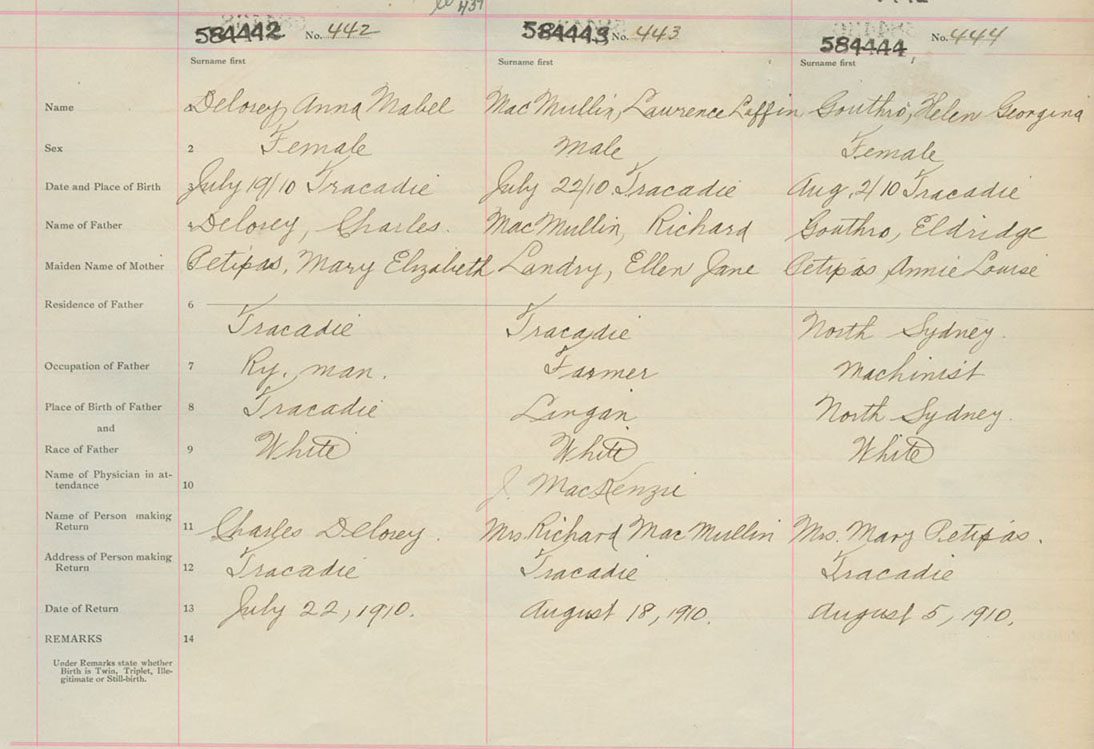 584442 No. 442 584443 No. 443 584444 No. 444
Surname first Surname first Surname first
Name 1 Delorey, Anna Mabel MacMullin, Lawrence Laffin Gouthro, Helen Georgina
Sex 2 Female Male Female
Date and Place of Birth 3 July 19/10 Tracadie July 22/10 Tracadie Aug. 2/10 Tracadie
Name of Father 4 Delorey, Charles. MacMullin, Richard Gouthro, Eldridge
Maiden Name of Mother Petipas, Mary Elizabeth Landry, Ellen Jane Petipas Annie Louise
Residence of Father 6
Tracadie Tracadie North Sydney.
Occupation of Father 7 Ry. man. Farmer Machinist
Place of Birth of Father 8 Tracadie Lingan North Sydney.
and
Race of Father 9 White White White
Name of Physician in at-
tendance 10 J. MacKenzie
Name of Person making
Return 11 Charles Delorey. Mrs. Richard MacMullin Mrs. Mary Petipas.
Address of Person making
Return 12 Tracadie Tracadie Tracadie
Date of Return 13 July 22, 1910. August 18, 1910. August 5, 1910.
REMARKS 14
Under Remarks state whether
Birth is Twin, Triplet, Ille-
gitimate or Still-birth.